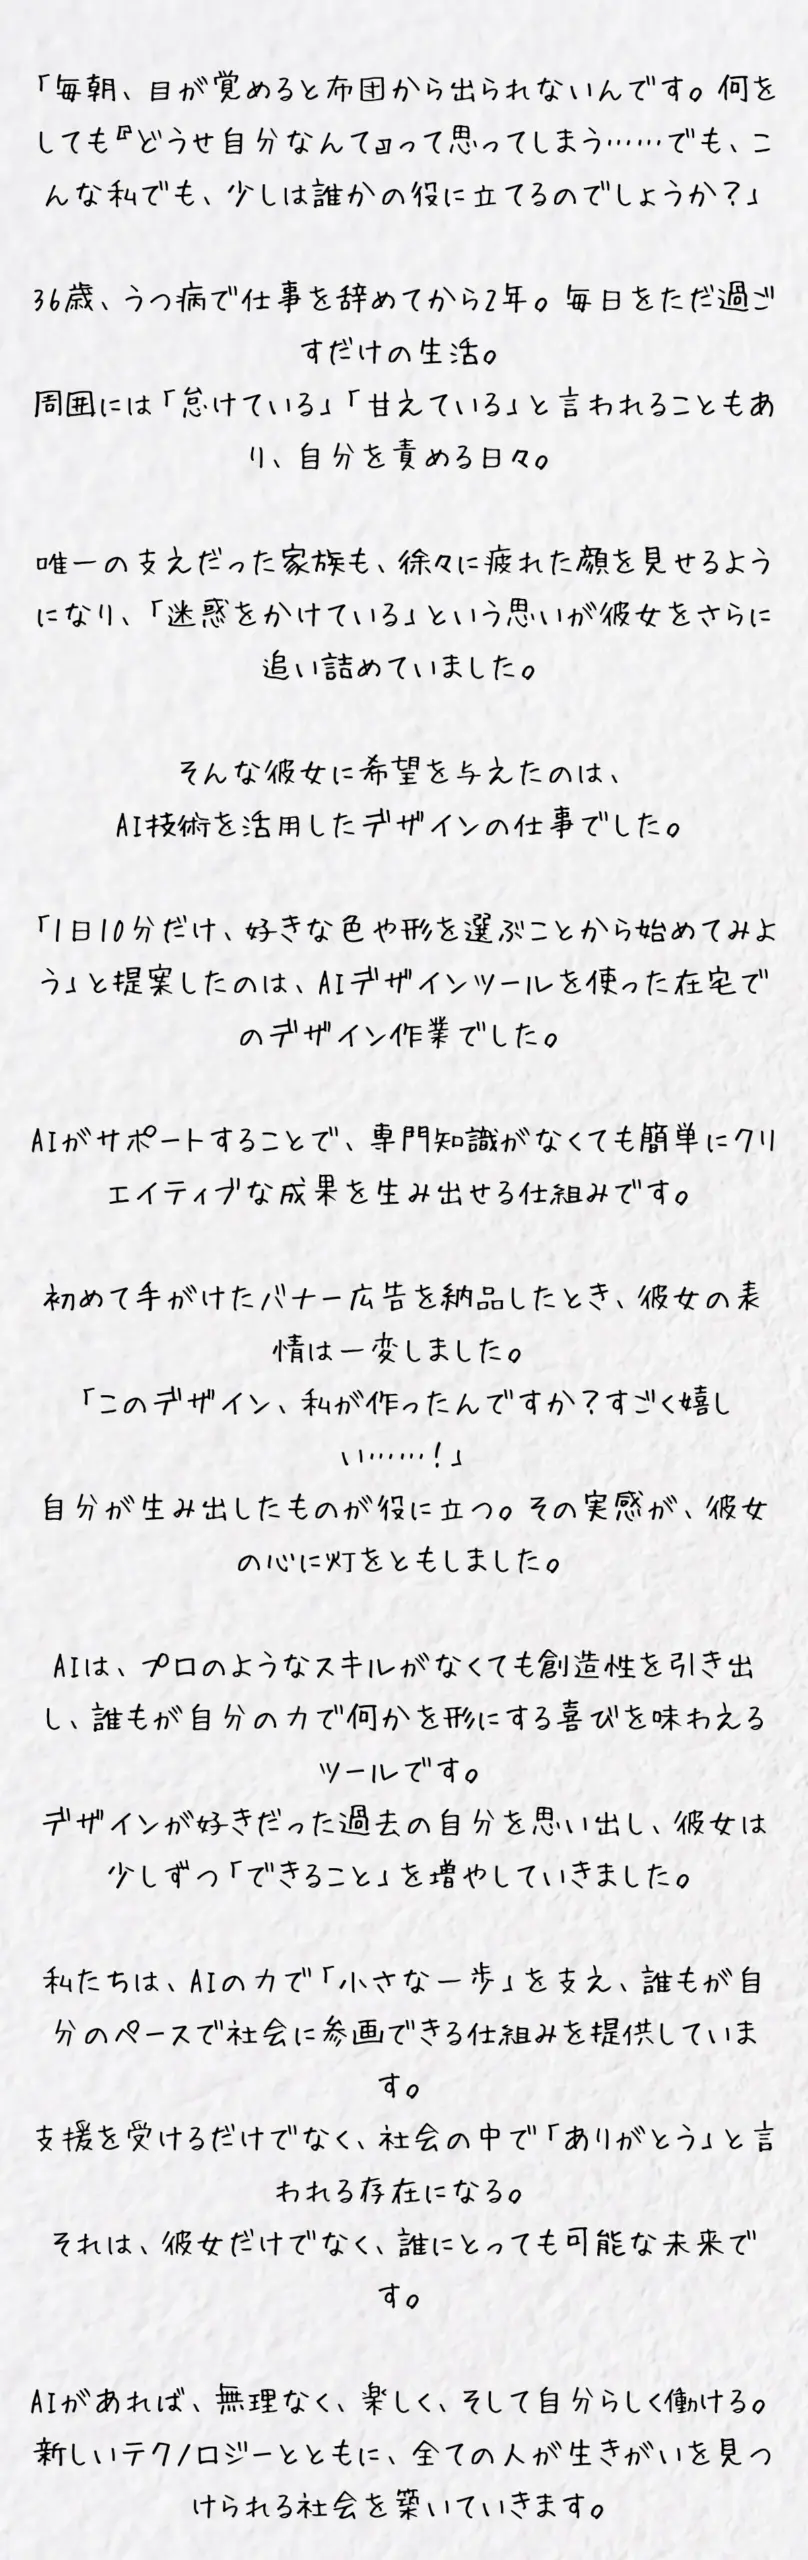 「毎朝、目が覚めると布団から出られないんです。何を
しても『どうせ自分なんて』って思ってしまう……でも、こ
んな私でも、少しは誰かの役に立てるのでしょうか？」
36歳、うつ病で仕事を辞めてから2年。毎日をただ過ご
すだけの生活。
周囲には「怠けている」「甘えている」と言われることもあ
り、自分を責める日々。
唯一の支えだった家族も、徐々に疲れた顔を見せるよう
になり、「迷惑をかけている」という思いが彼女をさらに
追い詰めていました。
そんな彼女に希望を与えたのは、
AI技術を活用したデザインの仕事でした。
「1日10分だけ、好きな色や形を選ぶことから始めてみよ
う」と提案したのは、AIデザインツールを使った在宅で
のデザイン作業でした。
AIがサポートすることで、専門知識がなくても簡単にクリ
エイティブな成果を生み出せる仕組みです。
初めて手がけたバナー広告を納品したとき、彼女の表
情は一変しました。
「このデザイン、私が作ったんですか？すごく嬉し
い……！」
自分が生み出したものが役に立つ。その実感が、彼女
の心に灯をともしました。
AIは、プロのようなスキルがなくても創造性を引き出
し、誰もが自分の力で何かを形にする喜びを味わえる
ツールです。
デザインが好きだった過去の自分を思い出し、彼女は
少しずつ「できること」を増やしていきました。
私たちは、AIの力で「小さな一歩」を支え、誰もが自
分のペースで社会に参画できる仕組みを提供していま
す。
支援を受けるだけでなく、社会の中で「ありがとう」と言
われる存在になる。
それは、彼女だけでなく、誰にとっても可能な未来で
す。
AIがあれば、無理なく、楽しく、そして自分らしく働ける。
新しいテクノロジーとともに、全ての人が生きがいを見つ
けられる社会を築いていきます。